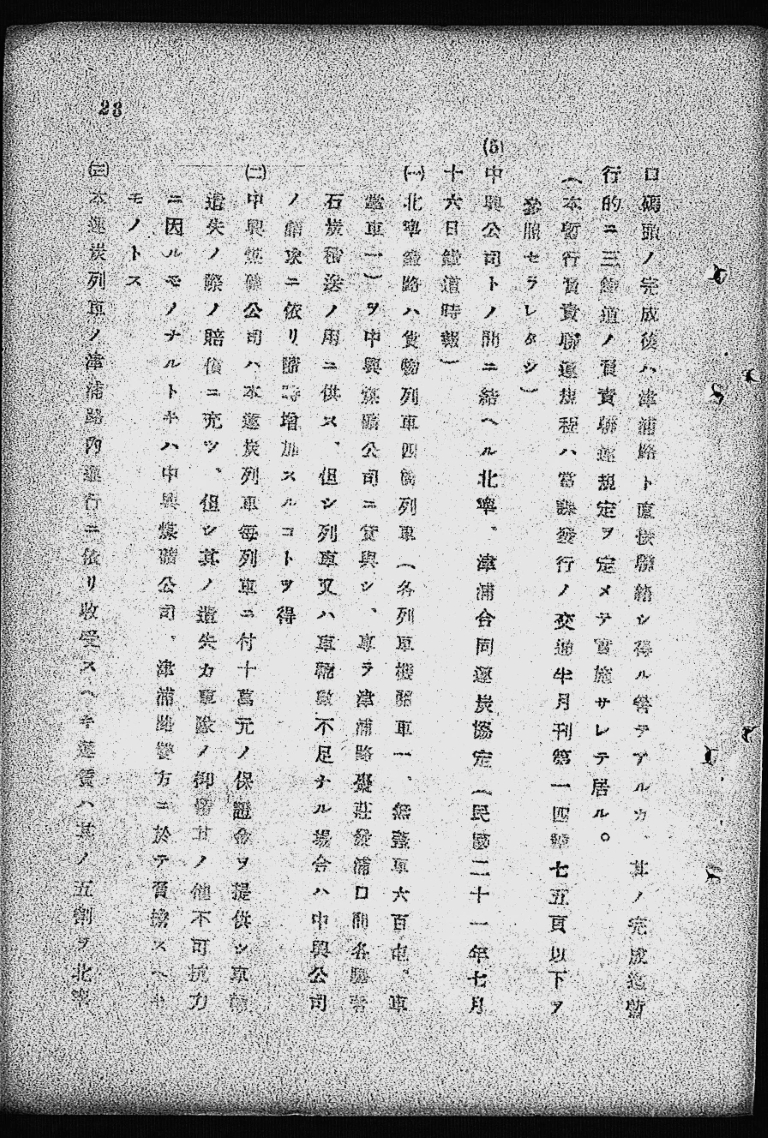 23
口碼頭ノ完成後ハ津浦路ト直接聯絡シ得ル筈デアルカ、其ノ完成迄暫
行的ニ三鐵道ノ貨車聯運規定ヲ定メテ實施サレテ居ル。
(本暫行貨車聯運規程ハ當課發行ノ交通半月刊第一四號七五頁以下ヲ
參照セラレタシ)
(5)中興公司トノ間ニ結ヘル北寧、津浦合同運炭協定(民國二十一年七月
十六日鐵道時報)
(一)北寧鐵路ハ貨物列車四箇列車(各列車機關車一、無蓋車六百屯、車
掌車一)ヲ中興煤礦公司ニ貸與シ、專ラ津浦路棗莊浦口間各驛
石炭積送ノ用ニ供ス、但シ列車又ハ車輛數不足ナル場合ハ中興公司
ノ請求ニ依リ隨時增加スルコトヲ得
(二)中興煤礦公司ハ本運炭列車每列車ニ付十萬元ノ保證金ヲ提供シ車輛
遺失ノ際ノ賠償ニ充ツ、但シ其ノ遺失カ軍隊ノ抑留其ノ他不可抗力
ニ因ルモノナルトキハ中興煤礦公司、津浦路雙方ニ於テ賠償スヘキ
モノトス
(三)本運炭列車ノ津浦路內運行ニ依リ收受スヘキ運賃ハ其ノ五割ヲ北寧